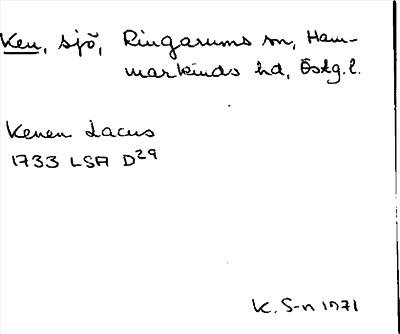 Ken, sjö, Ringarums sn, Ham-
markinds hd, Östg.l.
Kenen Lacus
1733 LSA D29
K. S-n 1971